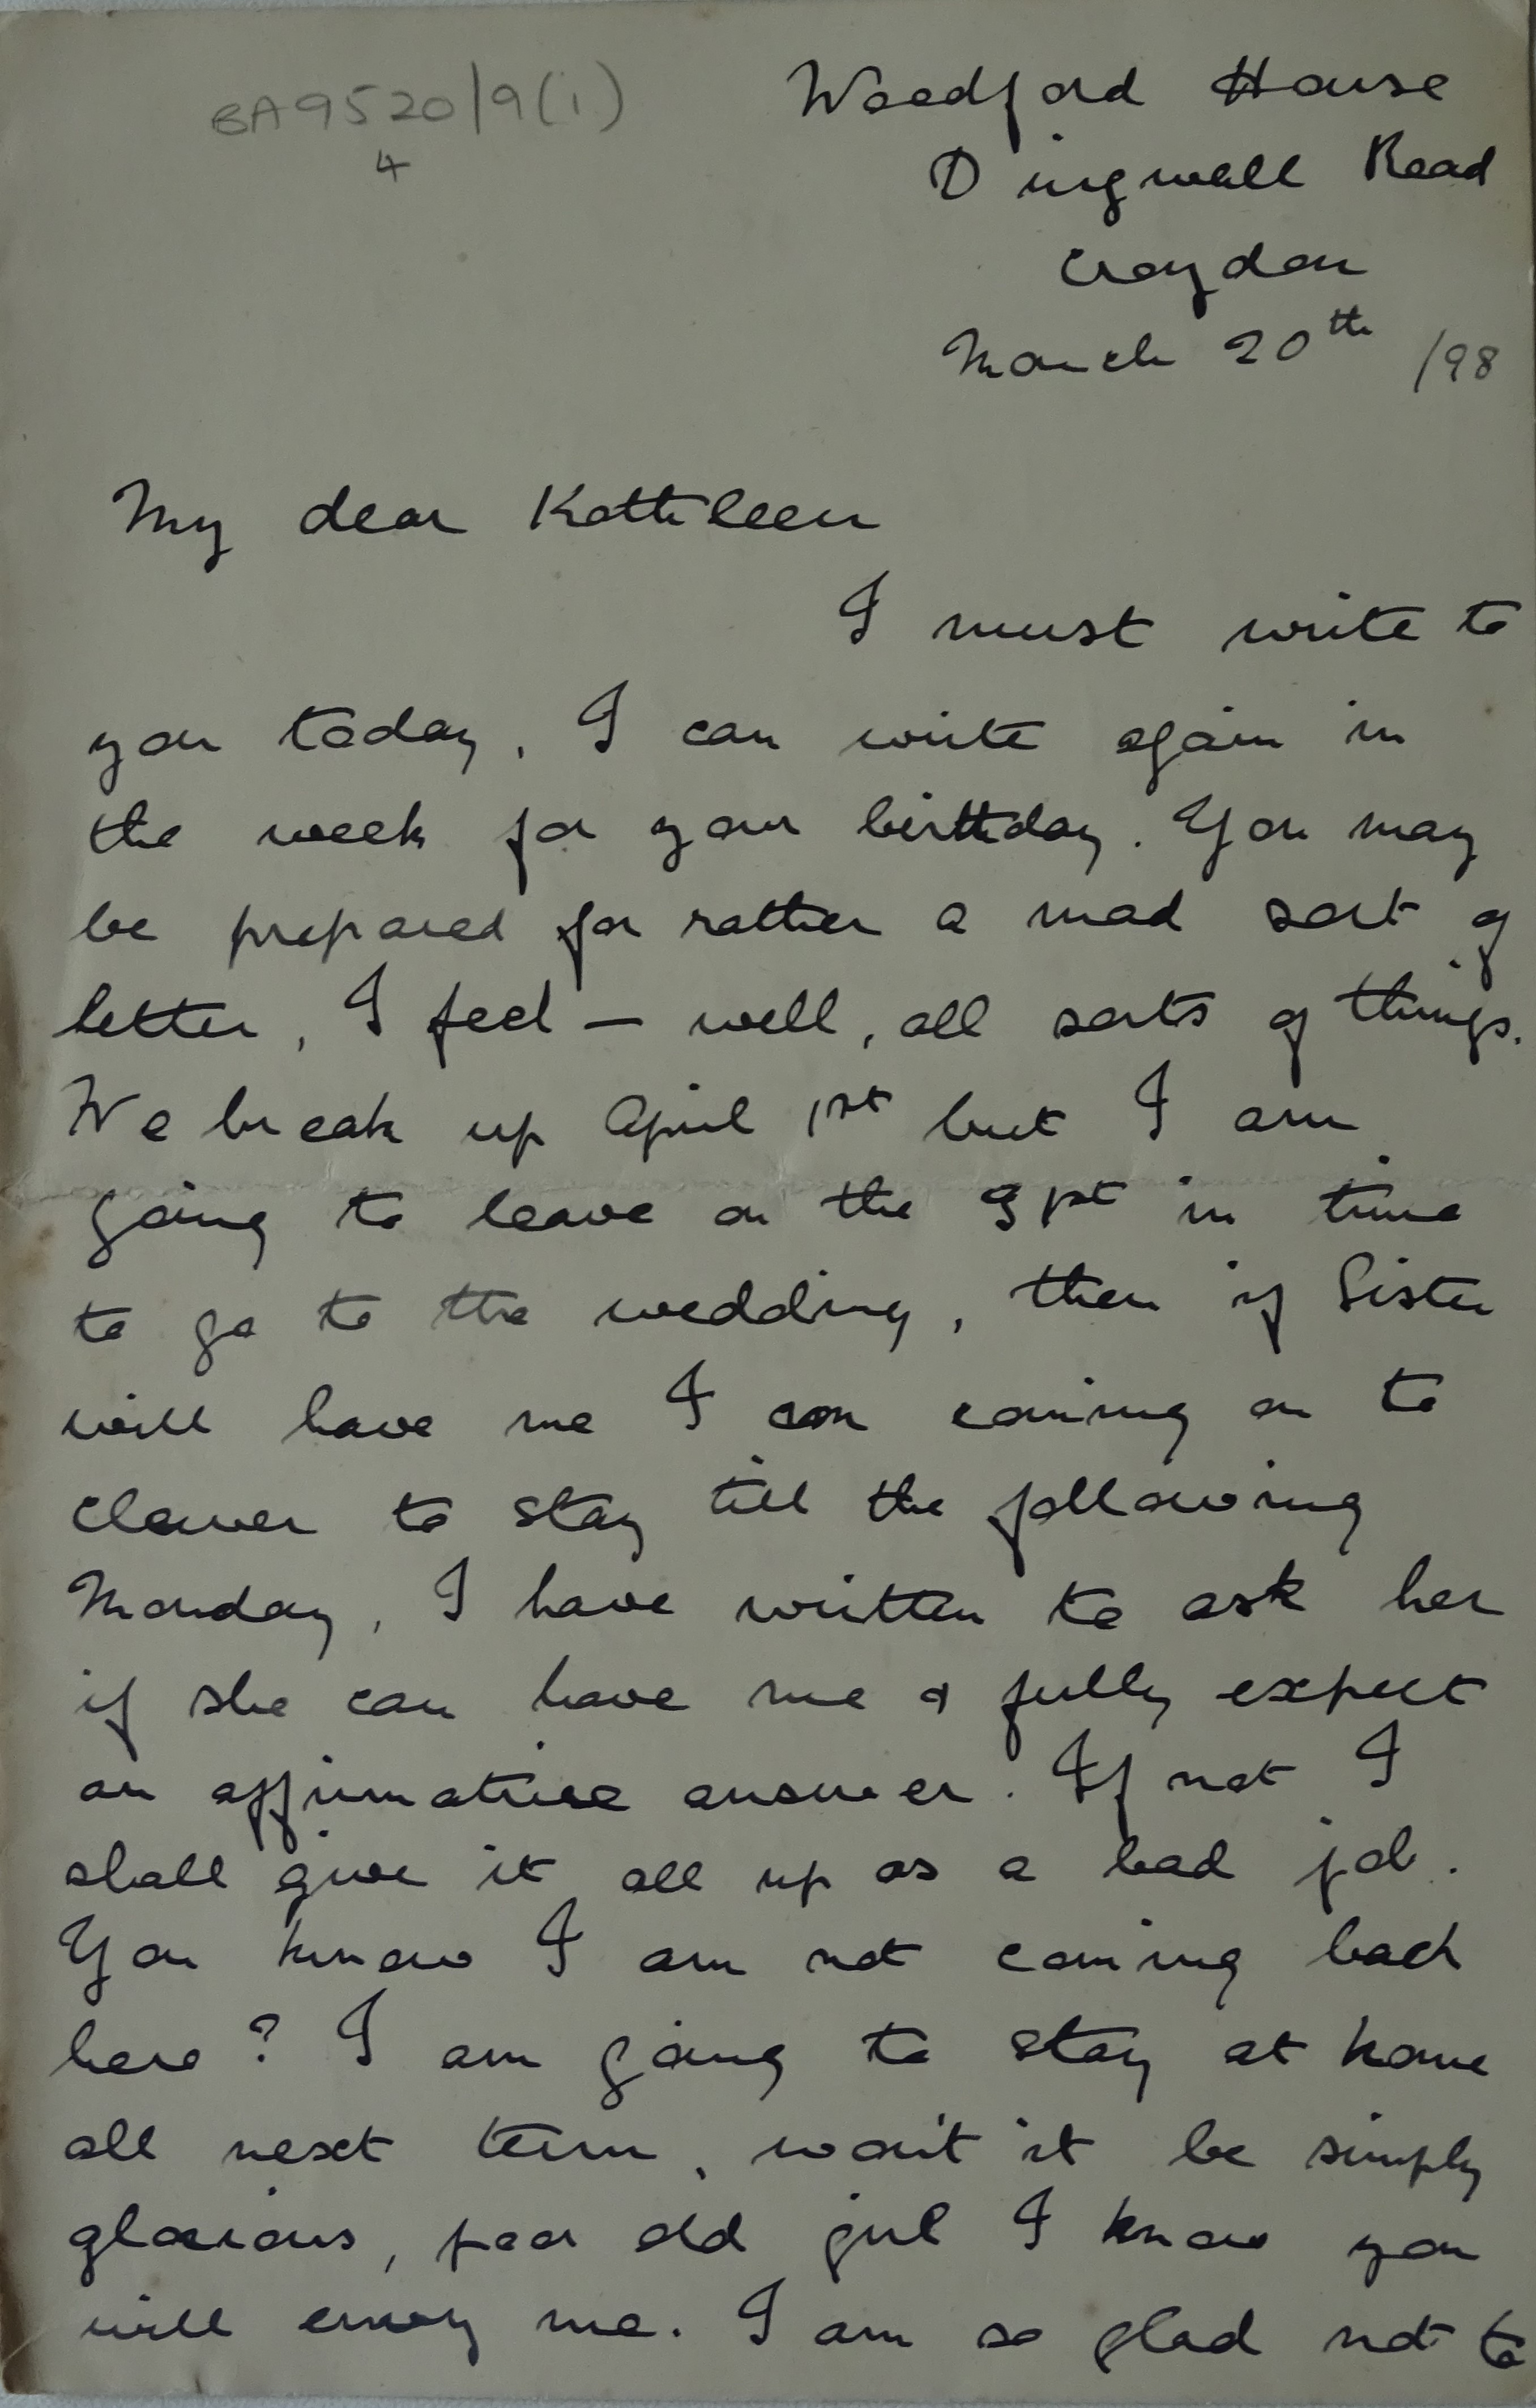 BA9520/9(i)
4
Woodford House
Dingwall Road
Croydon
March 20th /98
My dear Kathleen
I must write to
you today, I can write again in
the week for your birthday. You may
be prepared for rather a mad sort of
letter, I feel — well, all sorts of things.
We break up April 1st but I am
going to leave on the 31st in time
to go to the wedding, then if Sister
will have me I am coming on to
Clewer to stay till the following
Monday, I have written to ask her
if she can have me & fully expect
an affirmative answer. If not I
shall give it all up as a bad job.
You know I am not coming back
here? I am going to stay at home
all next term, won't it be simply
glorious, poor old girl I know you
will envy me. I am so glad not to